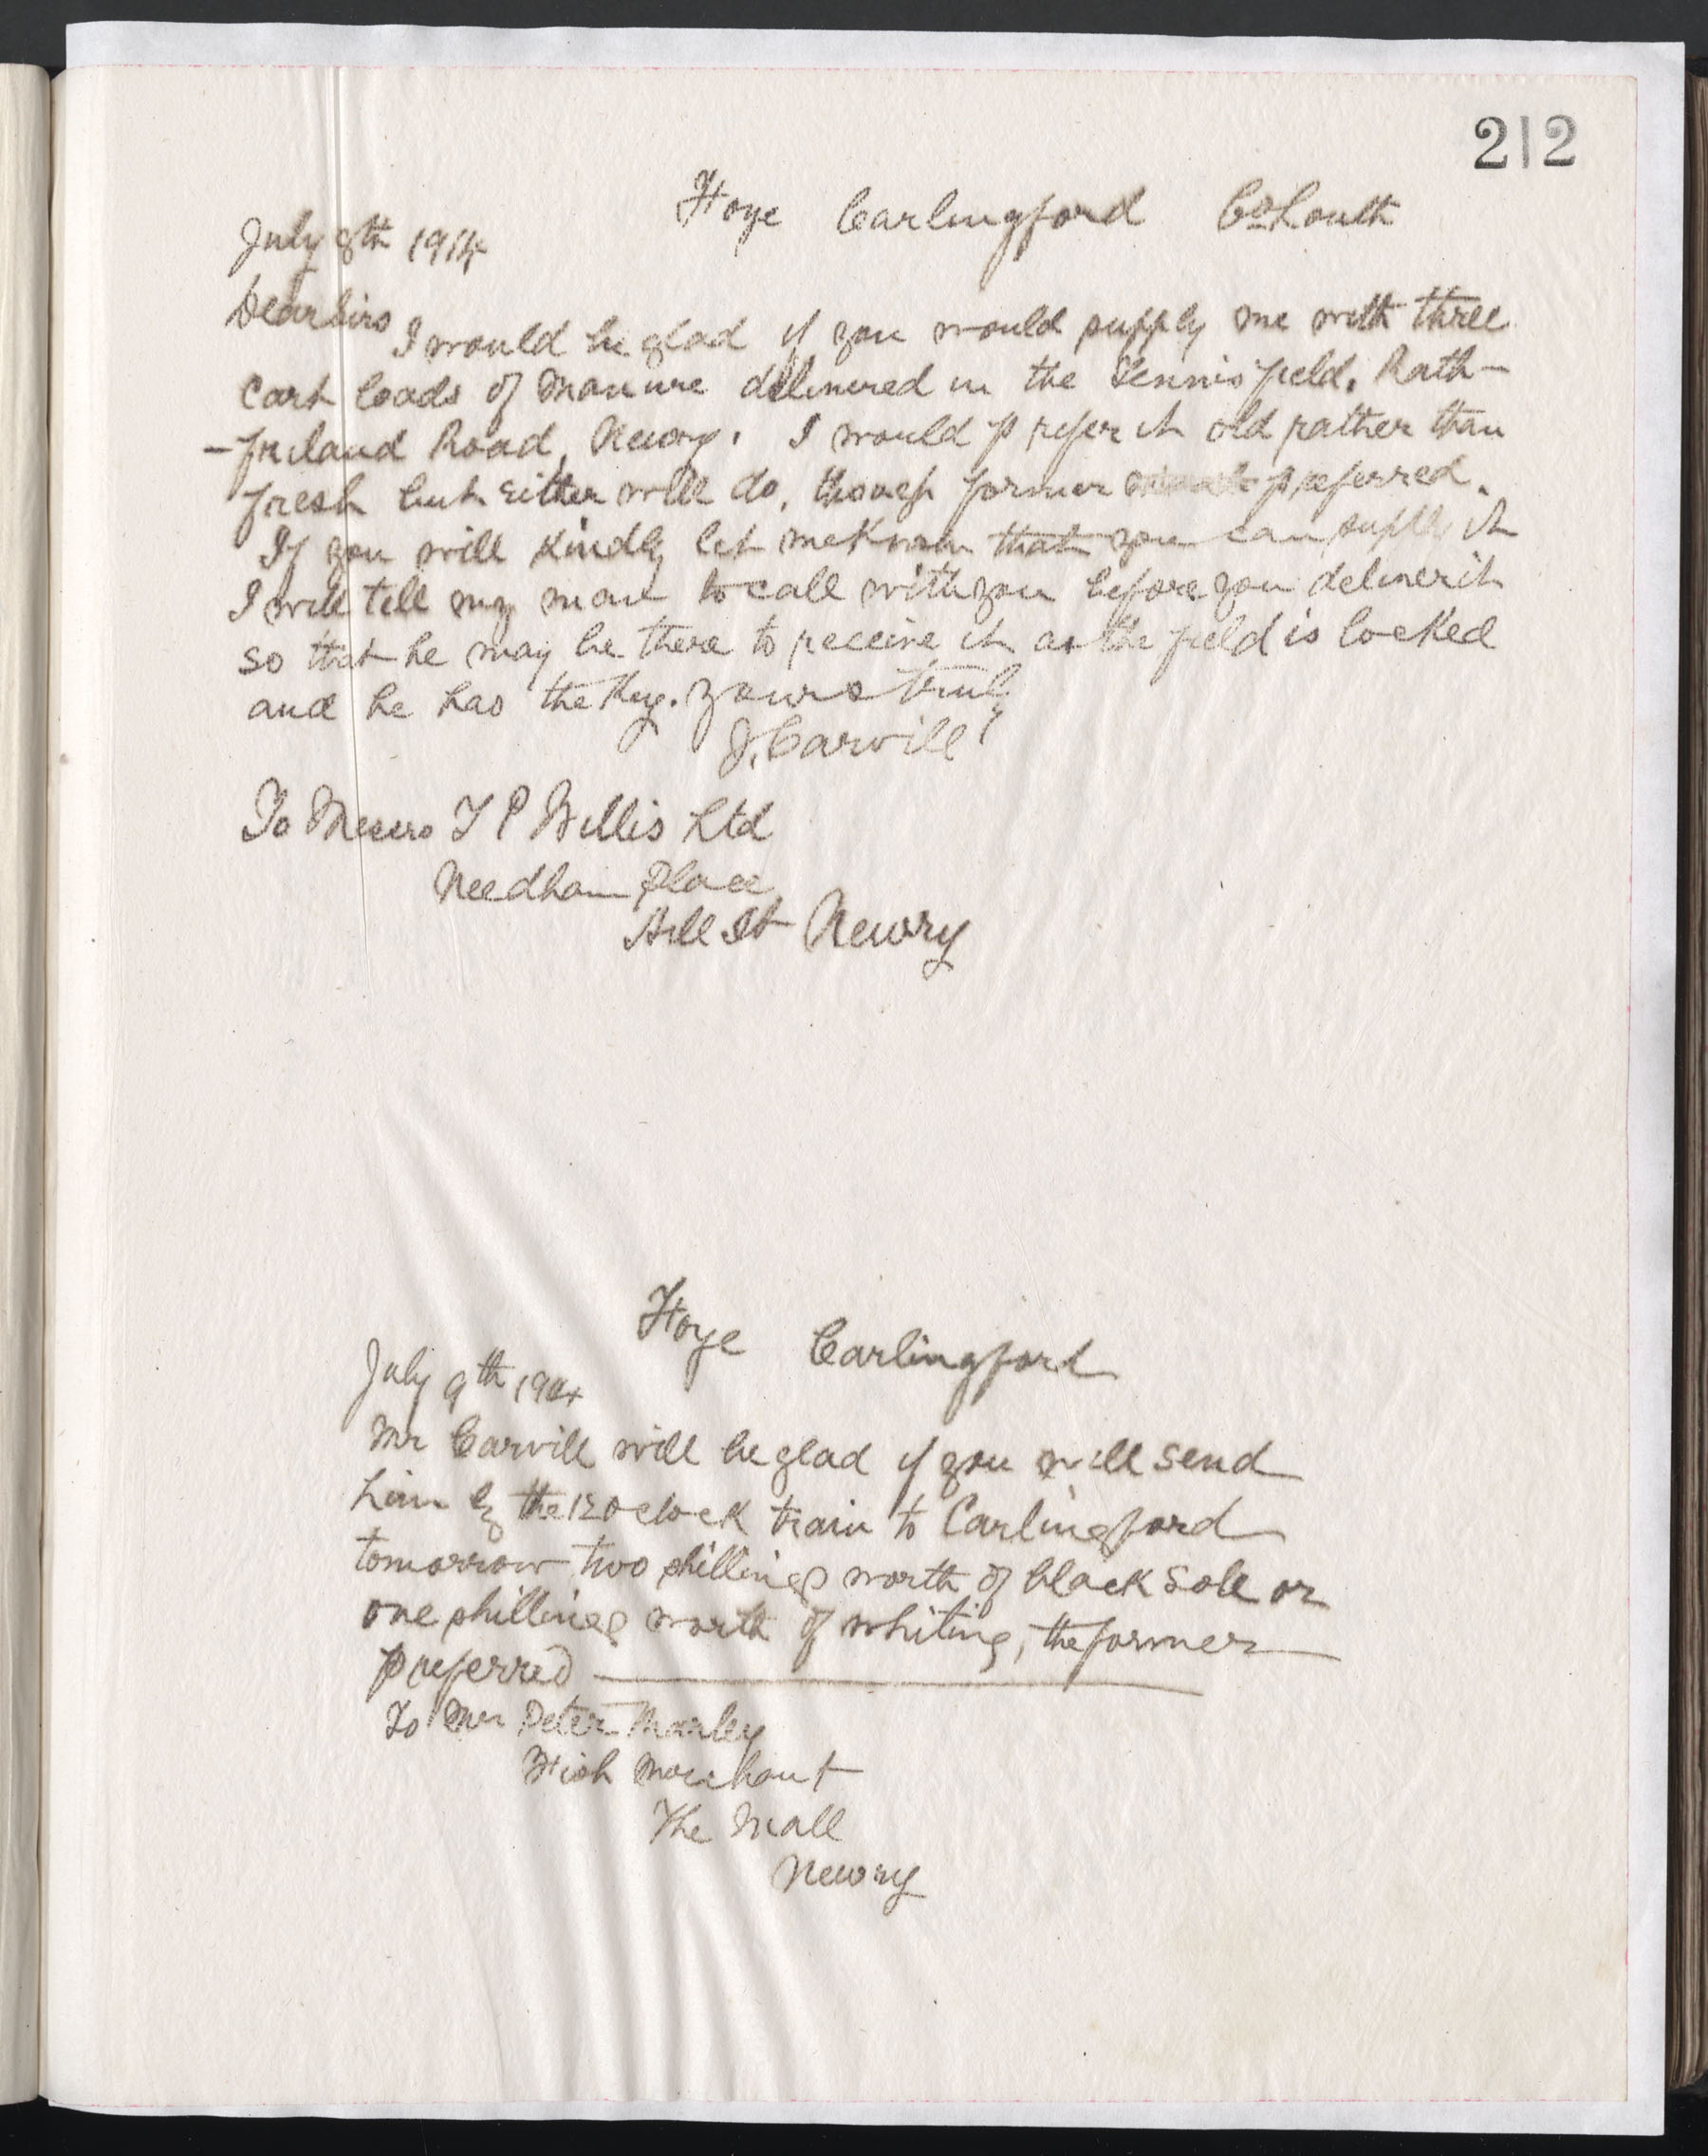 212
Foye Carlingford Co Louth
July 8th 1914
Dear Sirs
I would be glad if you would supply me with three
cart loads of manure delivered in the Tennis field, Rath-
-friland Road, Newry. I would prefer it old rather than
fresh but either will do, though former preferred.
If you will kindly let me know that you can supply it
I will tell my man to call with you before you deliver it
so that he may be there to receive it as the field is locked
and he has the key. Yours truly
J. Carvill
To Messrs T P Willis Ltd
Needham Place
Hill St Newry
Foye Carlingford
July 9th 1914
Mr Carvill will be glad if you will send
him by the 12 o clock train to Carlingford
tomorrow two shillings worth of black sole or
one shillings worth of whiting, the former
preferred
To Mr Peter Manley
Fish Merchant
The Mall
Newry